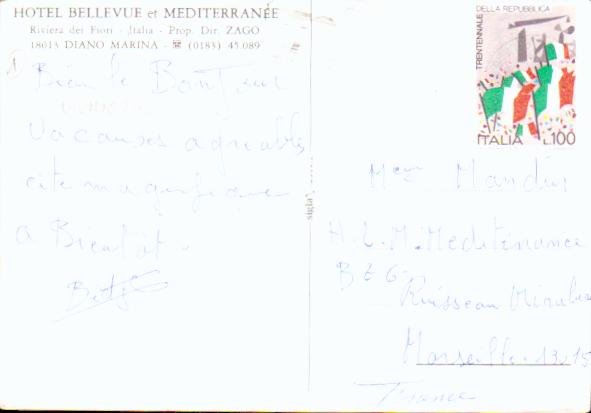 HOTEL BELLEVUE et MEDITERRANÉE
Riviera dei Fiori - Italia - Prop. Dir. ZAGO
18013 DIANO MARINA - ☎ (0183) 45.089
Bien le Bonjour
Vacances agréables
cité magnifique
a Bientôt.
TRENTENNALE DELLA REPUBBLICA
ITALIA L.100
Mme Mandin
H.L.M. Mediterranee
Bt G
Ruisseau Mirabeau
Marseille. 13.15
France